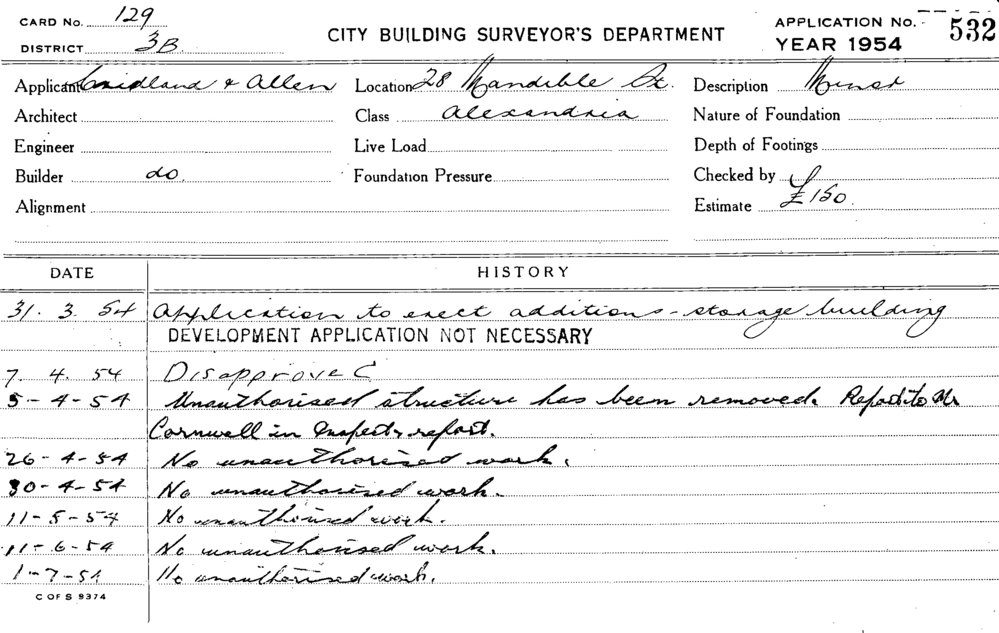 CARD No. 129
DISTRICT 3B
CITY BUILDING SURVEYOR'S DEPARTMENT
APPLICATION No. 532
YEAR 1954
Applicant & Allen Location 28 Mandible St. Description Minor
Architect Class Alexandria Nature of Foundation
Engineer Live Load Depth of Footings
Builder do. Foundation Pressure Checked by
Alignment Estimate £150.
DATE HISTORY
31. 3. 54 Application to erect additions - storage building
DEVELOPMENT APPLICATION NOT NECESSARY
7. 4. 54 Disapproved
5-4-54 Unauthorised structure has been removed. Mr
Cornwell in Inspect. report.
26-4-54 No unauthorised work.
30-4-54 No unauthorised work.
11-5-54 No unauthorised work.
11-6-54 No unauthorised work.
1-7-54 No unauthorised work.
C OF S 9374